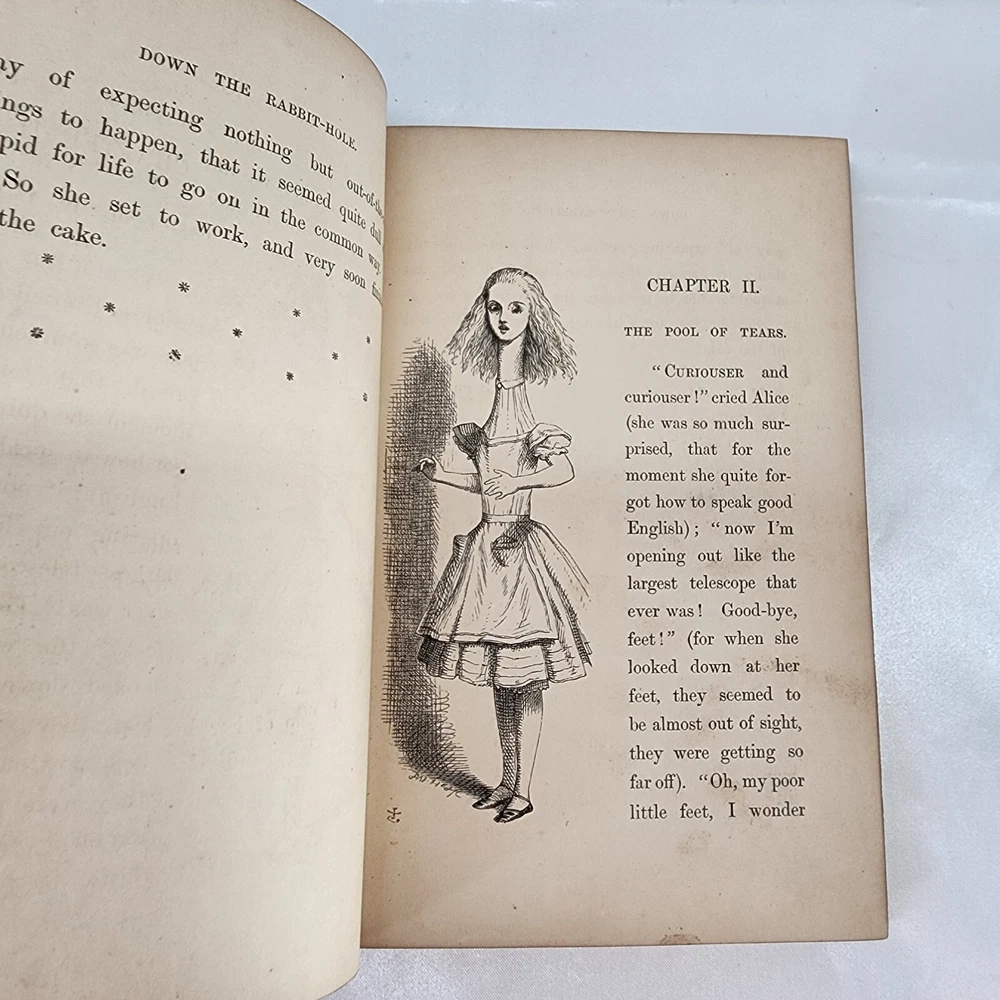 DOWN THE RABBIT-HOLE.
of expecting nothing but out-of-the-
to happen, that it seemed quite dull
for life to go on in the common way.
So she set to work, and very soon
the cake.
* * * *
* * *
* * * *
CHAPTER II.
THE POOL OF TEARS.
"CURIOUSER and
curiouser!" cried Alice
(she was so much sur-
prised, that for the
moment she quite for-
got how to speak good
English); "now I'm
opening out like the
largest telescope that
ever was! Good-bye,
feet!" (for when she
looked down at her
feet, they seemed to
be almost out of sight,
they were getting so
far off). "Oh, my poor
little feet, I wonder